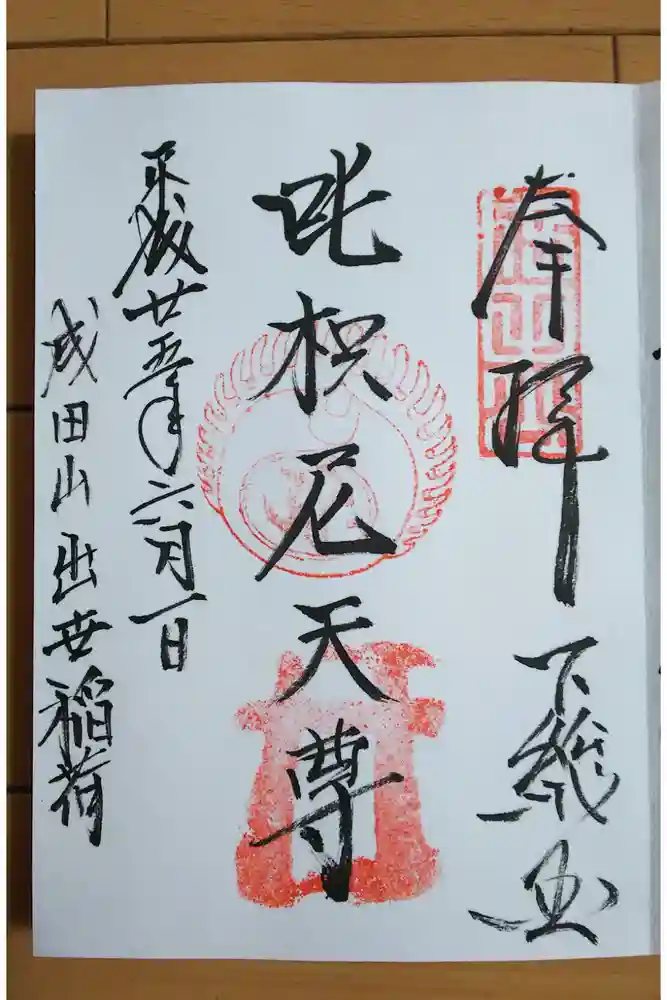 奉拝 下総国
吒枳尼天尊
平成廿五年六月一日
成田山 出世稲荷